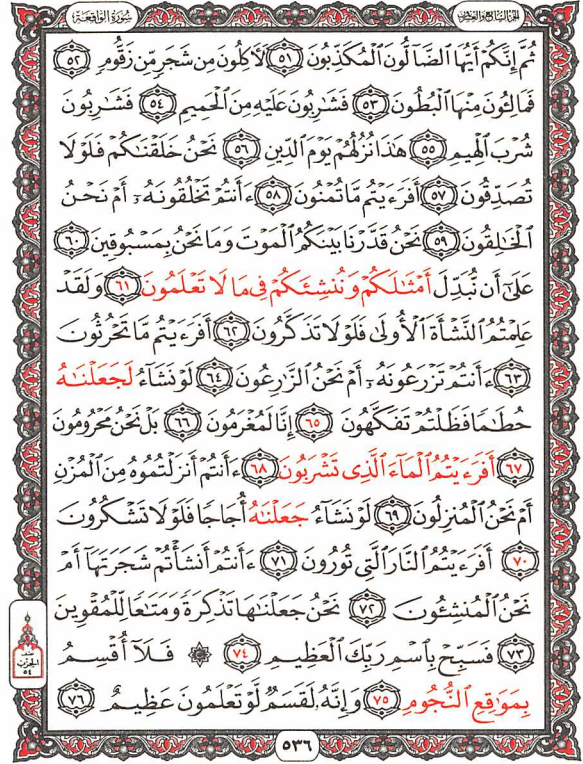 سُورَةُ الوَاقِعَة
الجزء السابع والعشرون
ثُمَّ إِنَّكُمْ أَيُّهَا ٱلضَّآلُّونَ ٱلْمُكَذِّبُونَ ٥١ لَأٓكِلُونَ مِن شَجَرٍ مِّن زَقُّومٍ ٥٢
فَمَالِـُٔونَ مِنْهَا ٱلْبُطُونَ ٥٣ فَشَٰرِبُونَ عَلَيْهِ مِنَ ٱلْحَمِيمِ ٥٤ فَشَٰرِبُونَ
شُرْبَ ٱلْهِيمِ ٥٥ هَٰذَا نُزُلُهُمْ يَوْمَ ٱلدِّينِ ٥٦ نَحْنُ خَلَقْنَٰكُمْ فَلَوْلَا
تُصَدِّقُونَ ٥٧ أَفَرَءَيْتُم مَّا تُمْنُونَ ٥٨ ءَأَنتُمْ تَخْلُقُونَهُۥٓ أَمْ نَحْنُ
ٱلْخَٰلِقُونَ ٥٩ نَحْنُ قَدَّرْنَا بَيْنَكُمُ ٱلْمَوْتَ وَمَا نَحْنُ بِمَسْبُوقِينَ ٦٠
عَلَىٰٓ أَن نُّبَدِّلَ أَمْثَٰلَكُمْ وَنُنشِئَكُمْ فِى مَا لَا تَعْلَمُونَ ٦١ وَلَقَدْ
عَلِمْتُمُ ٱلنَّشْأَةَ ٱلْأُولَىٰ فَلَوْلَا تَذَكَّرُونَ ٦٢ أَفَرَءَيْتُم مَّا تَحْرُثُونَ
٦٣ ءَأَنتُمْ تَزْرَعُونَهُۥٓ أَمْ نَحْنُ ٱلزَّٰرِعُونَ ٦٤ لَوْ نَشَآءُ لَجَعَلْنَٰهُ
حُطَٰمًا فَظَلْتُمْ تَفَكَّهُونَ ٦٥ إِنَّا لَمُغْرَمُونَ ٦٦ بَلْ نَحْنُ مَحْرُومُونَ
٦٧ أَفَرَءَيْتُمُ ٱلْمَآءَ ٱلَّذِى تَشْرَبُونَ ٦٨ ءَأَنتُمْ أَنزَلْتُمُوهُ مِنَ ٱلْمُزْنِ
أَمْ نَحْنُ ٱلْمُنزِلُونَ ٦٩ لَوْ نَشَآءُ جَعَلْنَٰهُ أُجَاجًا فَلَوْلَا تَشْكُرُونَ
٧٠ أَفَرَءَيْتُمُ ٱلنَّارَ ٱلَّتِى تُورُونَ ٧١ ءَأَنتُمْ أَنشَأْتُمْ شَجَرَتَهَآ أَمْ
نَحْنُ ٱلْمُنشِـُٔونَ ٧٢ نَحْنُ جَعَلْنَٰهَا تَذْكِرَةً وَمَتَٰعًا لِّلْمُقْوِينَ
٧٣ فَسَبِّحْ بِٱسْمِ رَبِّكَ ٱلْعَظِيمِ ٧٤ ۞ فَلَآ أُقْسِمُ
بِمَوَٰقِعِ ٱلنُّجُومِ ٧٥ وَإِنَّهُۥ لَقَسَمٌ لَّوْ تَعْلَمُونَ عَظِيمٌ ٧٦
الحزب
٥٤
٥٣٦